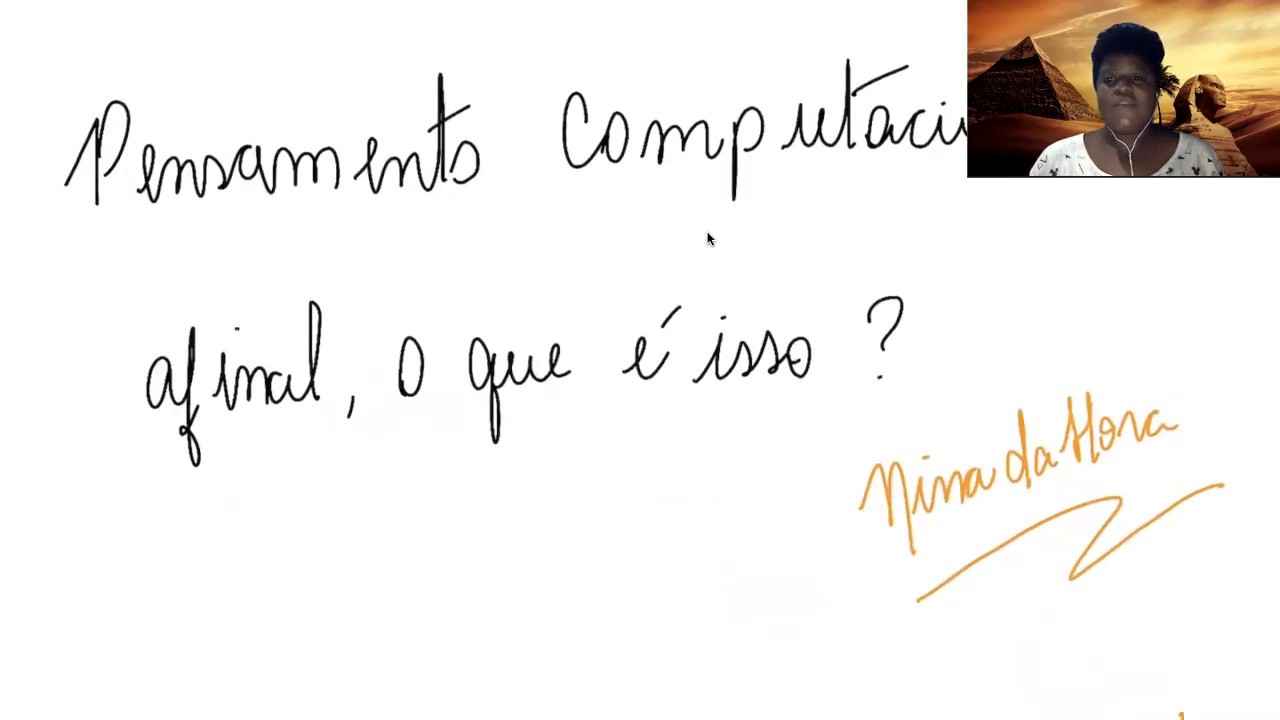 Pensamento Computaci
afinal, o que é isso ?
Nina da Hora